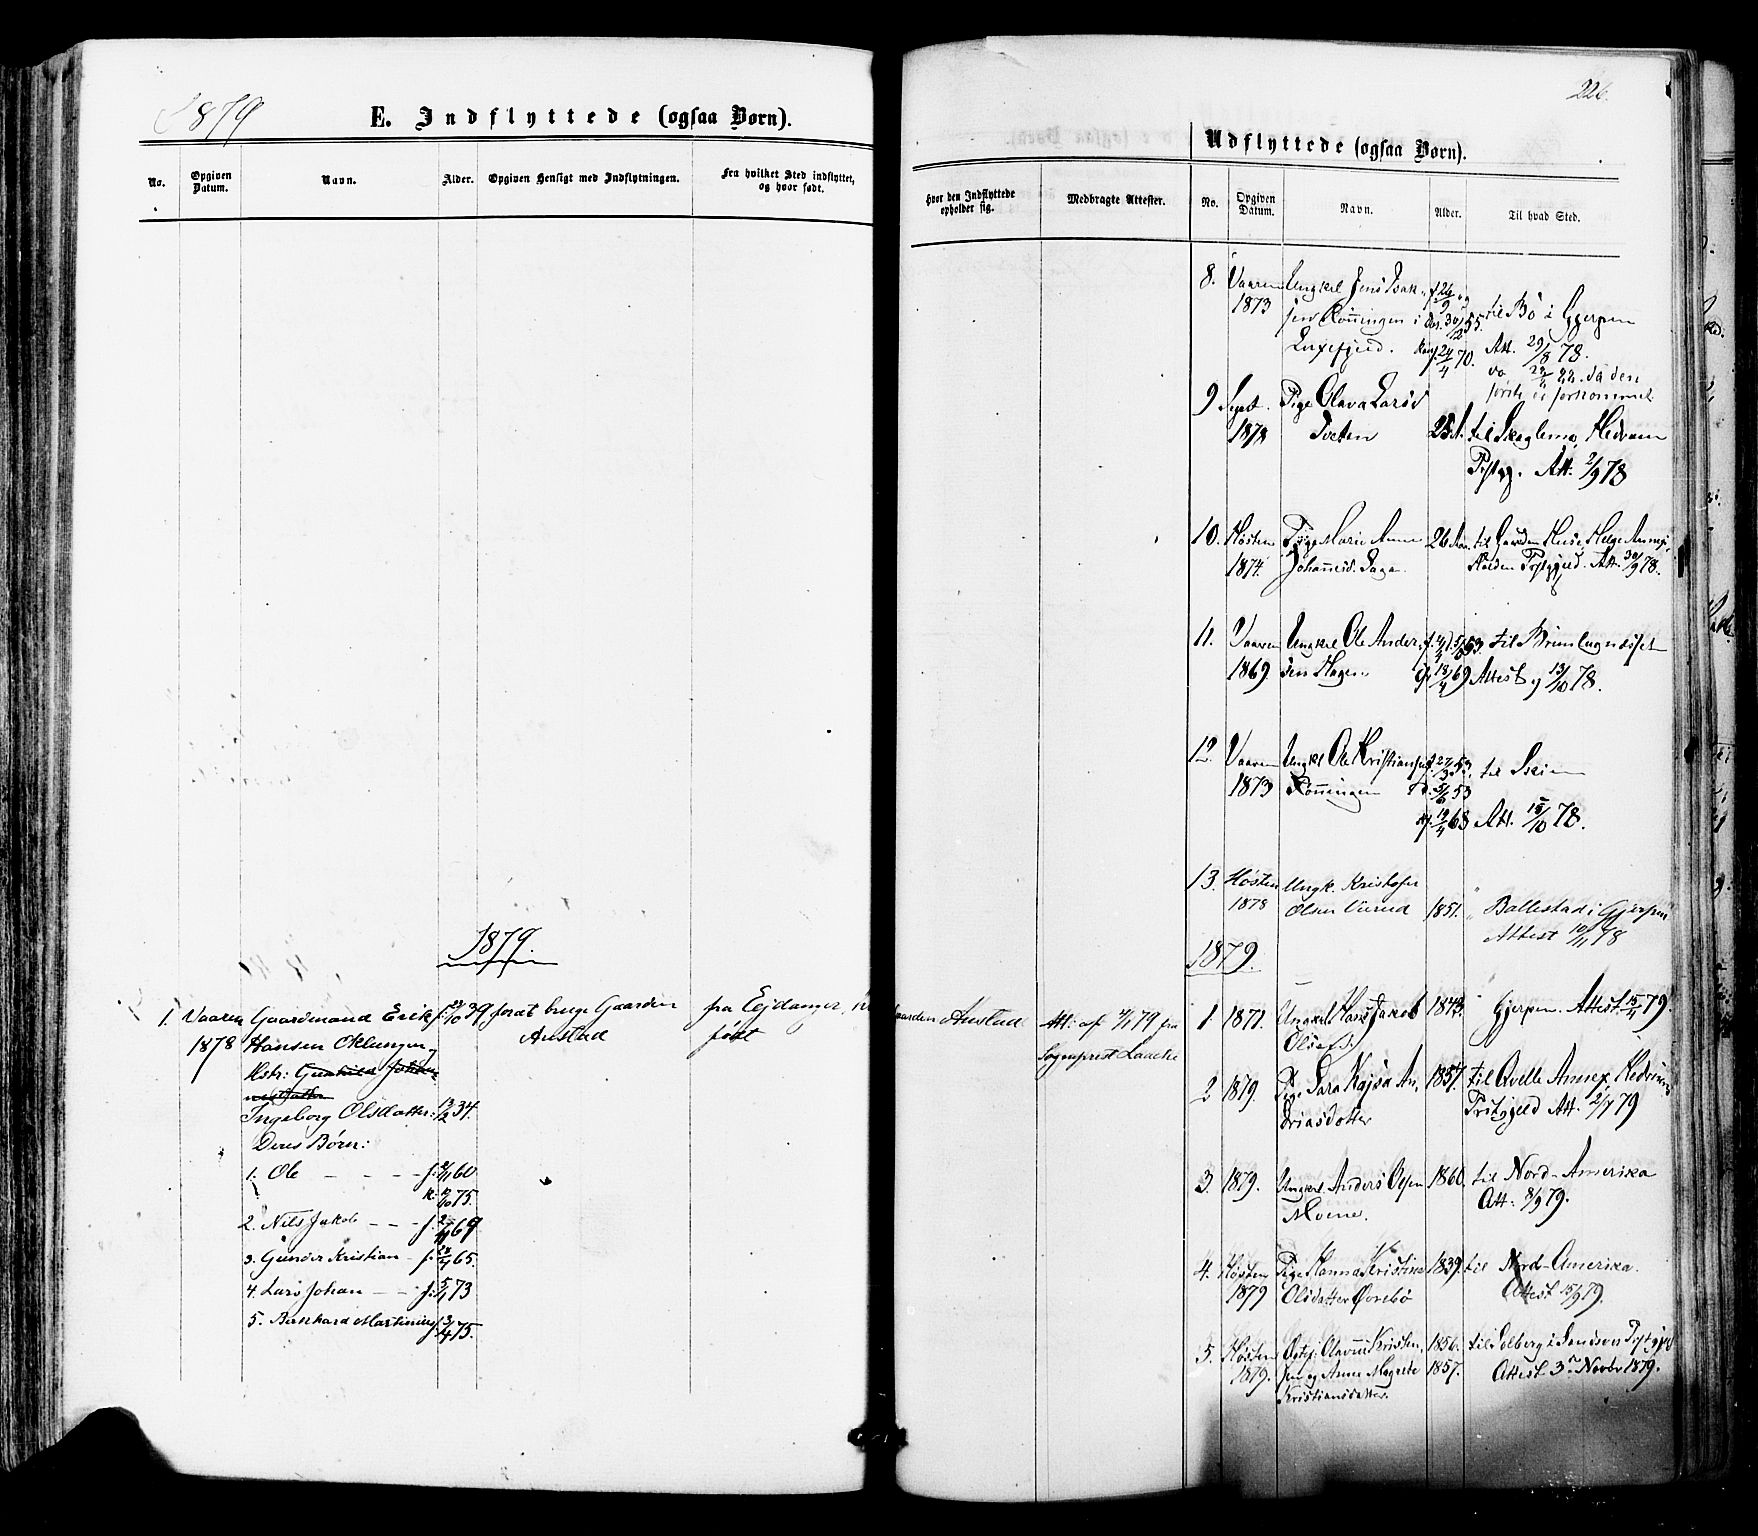 1879
E. Indflyttede (ogsaa Børn).
No.
Opgiven Datum.
Navn.
Alder.
Opgiven Hensigt med Indflytningen.
Fra hvilket Sted indflyttet, og hvor født.
1879.
1. Vaaren Gaardmand Erik 39 for at bruge Gaarden fra Eidanger,
1878 Hansen Oklungen, Austad født
Kstr: Gunhild
Ingeborg Olsdatter: 13/2 34.
Deres Børn:
1. Ole f. 60
k. 75.
2. Nils Jakob f. 69
3. Gunder Kristian f. 65.
4. Lars Johan f. 73
5. Bernhard Martinius f. 75.
226.
Udflyttede (ogsaa Børn).
Hvor den Indflyttede opholder sig.
Medbragte Attester.
No.
Opgiven Datum.
Navn.
Alder.
Til hvad Sted.
Gaarden Austad Att: af 79 fra
Sogneprest Laache
8. Vaaren Ungkrl Jens Isak- f. 26/9 og til Bø i Gjerpen
1873 sen Rönningen i 30/12 55. Att. 29/8 78.
Luxefjeld. Konf. 24/4 70. da den
første er forkommet.
9 Septr. Pige Olava Larsd
1878 Tveten 23 A. til Skaglemo, Hedrum
Prstgj. Att. 2/9 78
10. Høsten Pige Marie Anne 26 Aar. til Gaarden
1874. Johannesd. Saga. Prstgjeld. Att. 30/9 78.
11. Vaaren Ungkrl Ole Ander- 53. til Brunlagnæsset
1869 sen Hagen 18/4 69 Attest 13/10 78.
12. Vaaren Ungkl. Ole Kristiansen f. 27/3 53. til Skien
1873 Rönningen D. 5/6 53
18/4 68 Att. 15/10 78.
13. Høsten Ungk. Kristofer
1878 Olsen 1851. " Ballestad i Gjerpen
Attest 10/11 78
1879.
1. 1871. Ungkrl Hans Jakob 1843. Gjerpen. Attest. 15/4 79.
Olsen
2 1879. Pige Sara Kajsa An- 1857. til Qvelle Annex, Hedrum
driasdotter Prstgjeld Att. 2/7 79
3. 1879. Ungkrl. Anders Olsen 1860. til Nord-Amerika
Moene. Att: 8/9 79.
4. Høsten Pige Hanna Kristine 1839. til Nord-Amerika.
1879 Olsdatter Ørebö Attest 15/9 79.
5. Høsten Olavus Kristen- 1856. til Solberg i Prstgjd
1879. sen og Anne Magrete 1857. Attest 3. Novbr 1879.
Kristiansdatter.